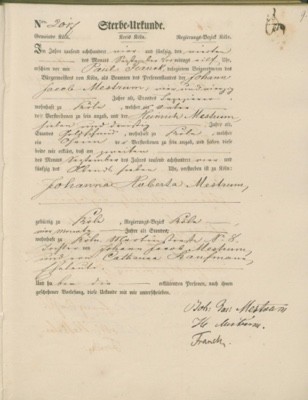 No 2011 Sterbe-Urkunde.
Gemeinde Köln. Kreis Köln. Regierungs-Bezirk Köln.
Im Jahre tausend achthundert vier und fünfzig, den vierten
des Monats September Vormittags elf Uhr,
erschien vor mir Franck, delegirtem Beigeordneten des
Bürgermeisters von Köln, als Beamten des Personenstandes der Johann
Jacob Mestrum, vier und
Jahre alt, Standes Tapezierer
wohnhaft zu Köln, welcher Vater
de Verstorbenen zu sein angab, und der Heinrich Mestrum,
sieben und dreißig Jahre alt,
Standes wohnhaft zu Köln, welcher
ein Oheim de Verstorbenen zu sein angab, und haben diese
beide mir erklärt, daß am zweiten
des Monats September des Jahres tausend achthundert vier und
fünfzig Abends sieben Uhr, verstorben ist zu Köln:
Johanna Huberta Mestrum,
gebürtig zu Köln, Regierungs-Bezirk Köln
vier Monate Jahre alt, Standes
wohnhaft zu Köln,
Tochter von Johann Jacob Mestrum,
und von Catharina Kaufmann,
Eheleute.
Und haben die erklärenden Personen, nach ihnen
geschehener Vorlesung, diese Urkunde mit mir unterschrieben.
Joh. Mestrum
H Mestrum.
Franck.